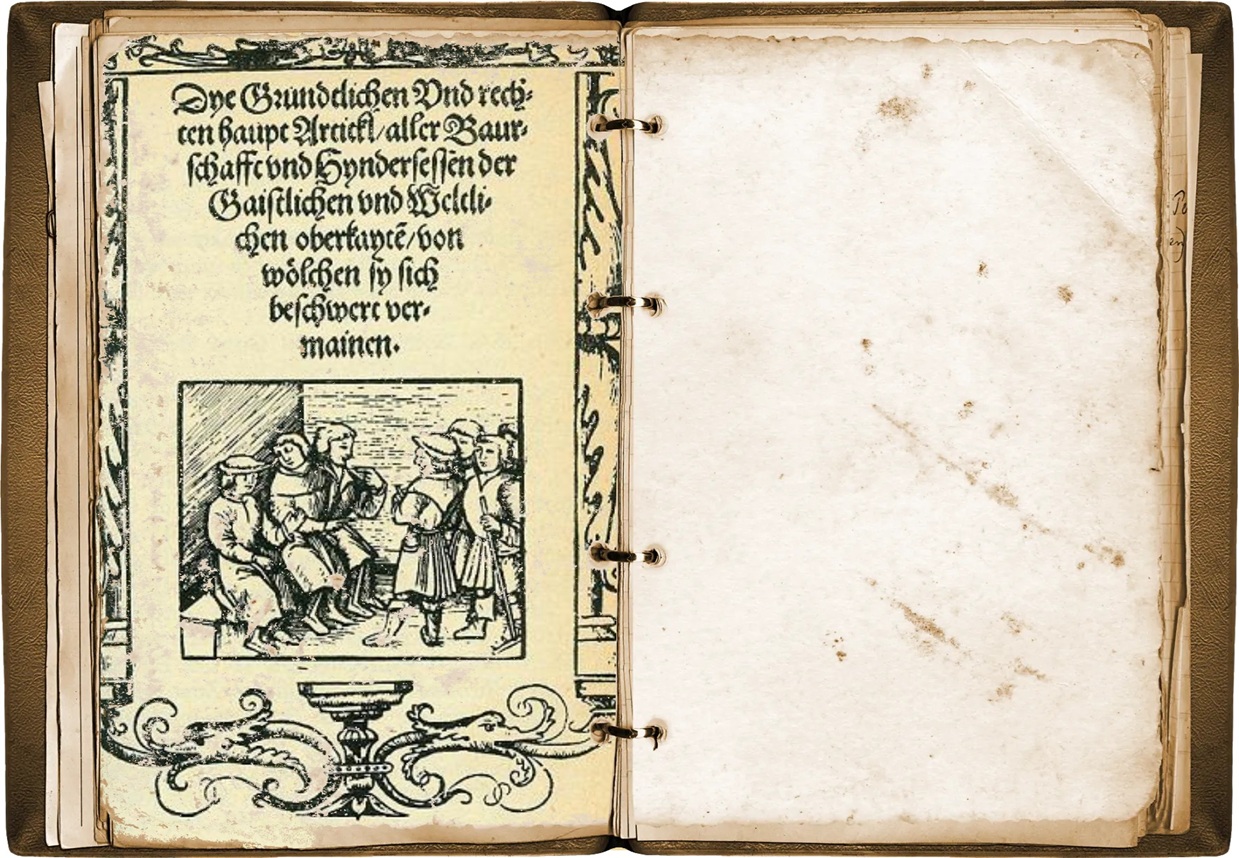 Dye Grundtlichen Vnd rech-
ten haupt Artickl/aller Baur-
schafft vnd Hyndersessen der
Gaistlichen vnd Weltli-
chen oberkaytẽ/von
wölchen sy sich
beschwert ver-
mainen.